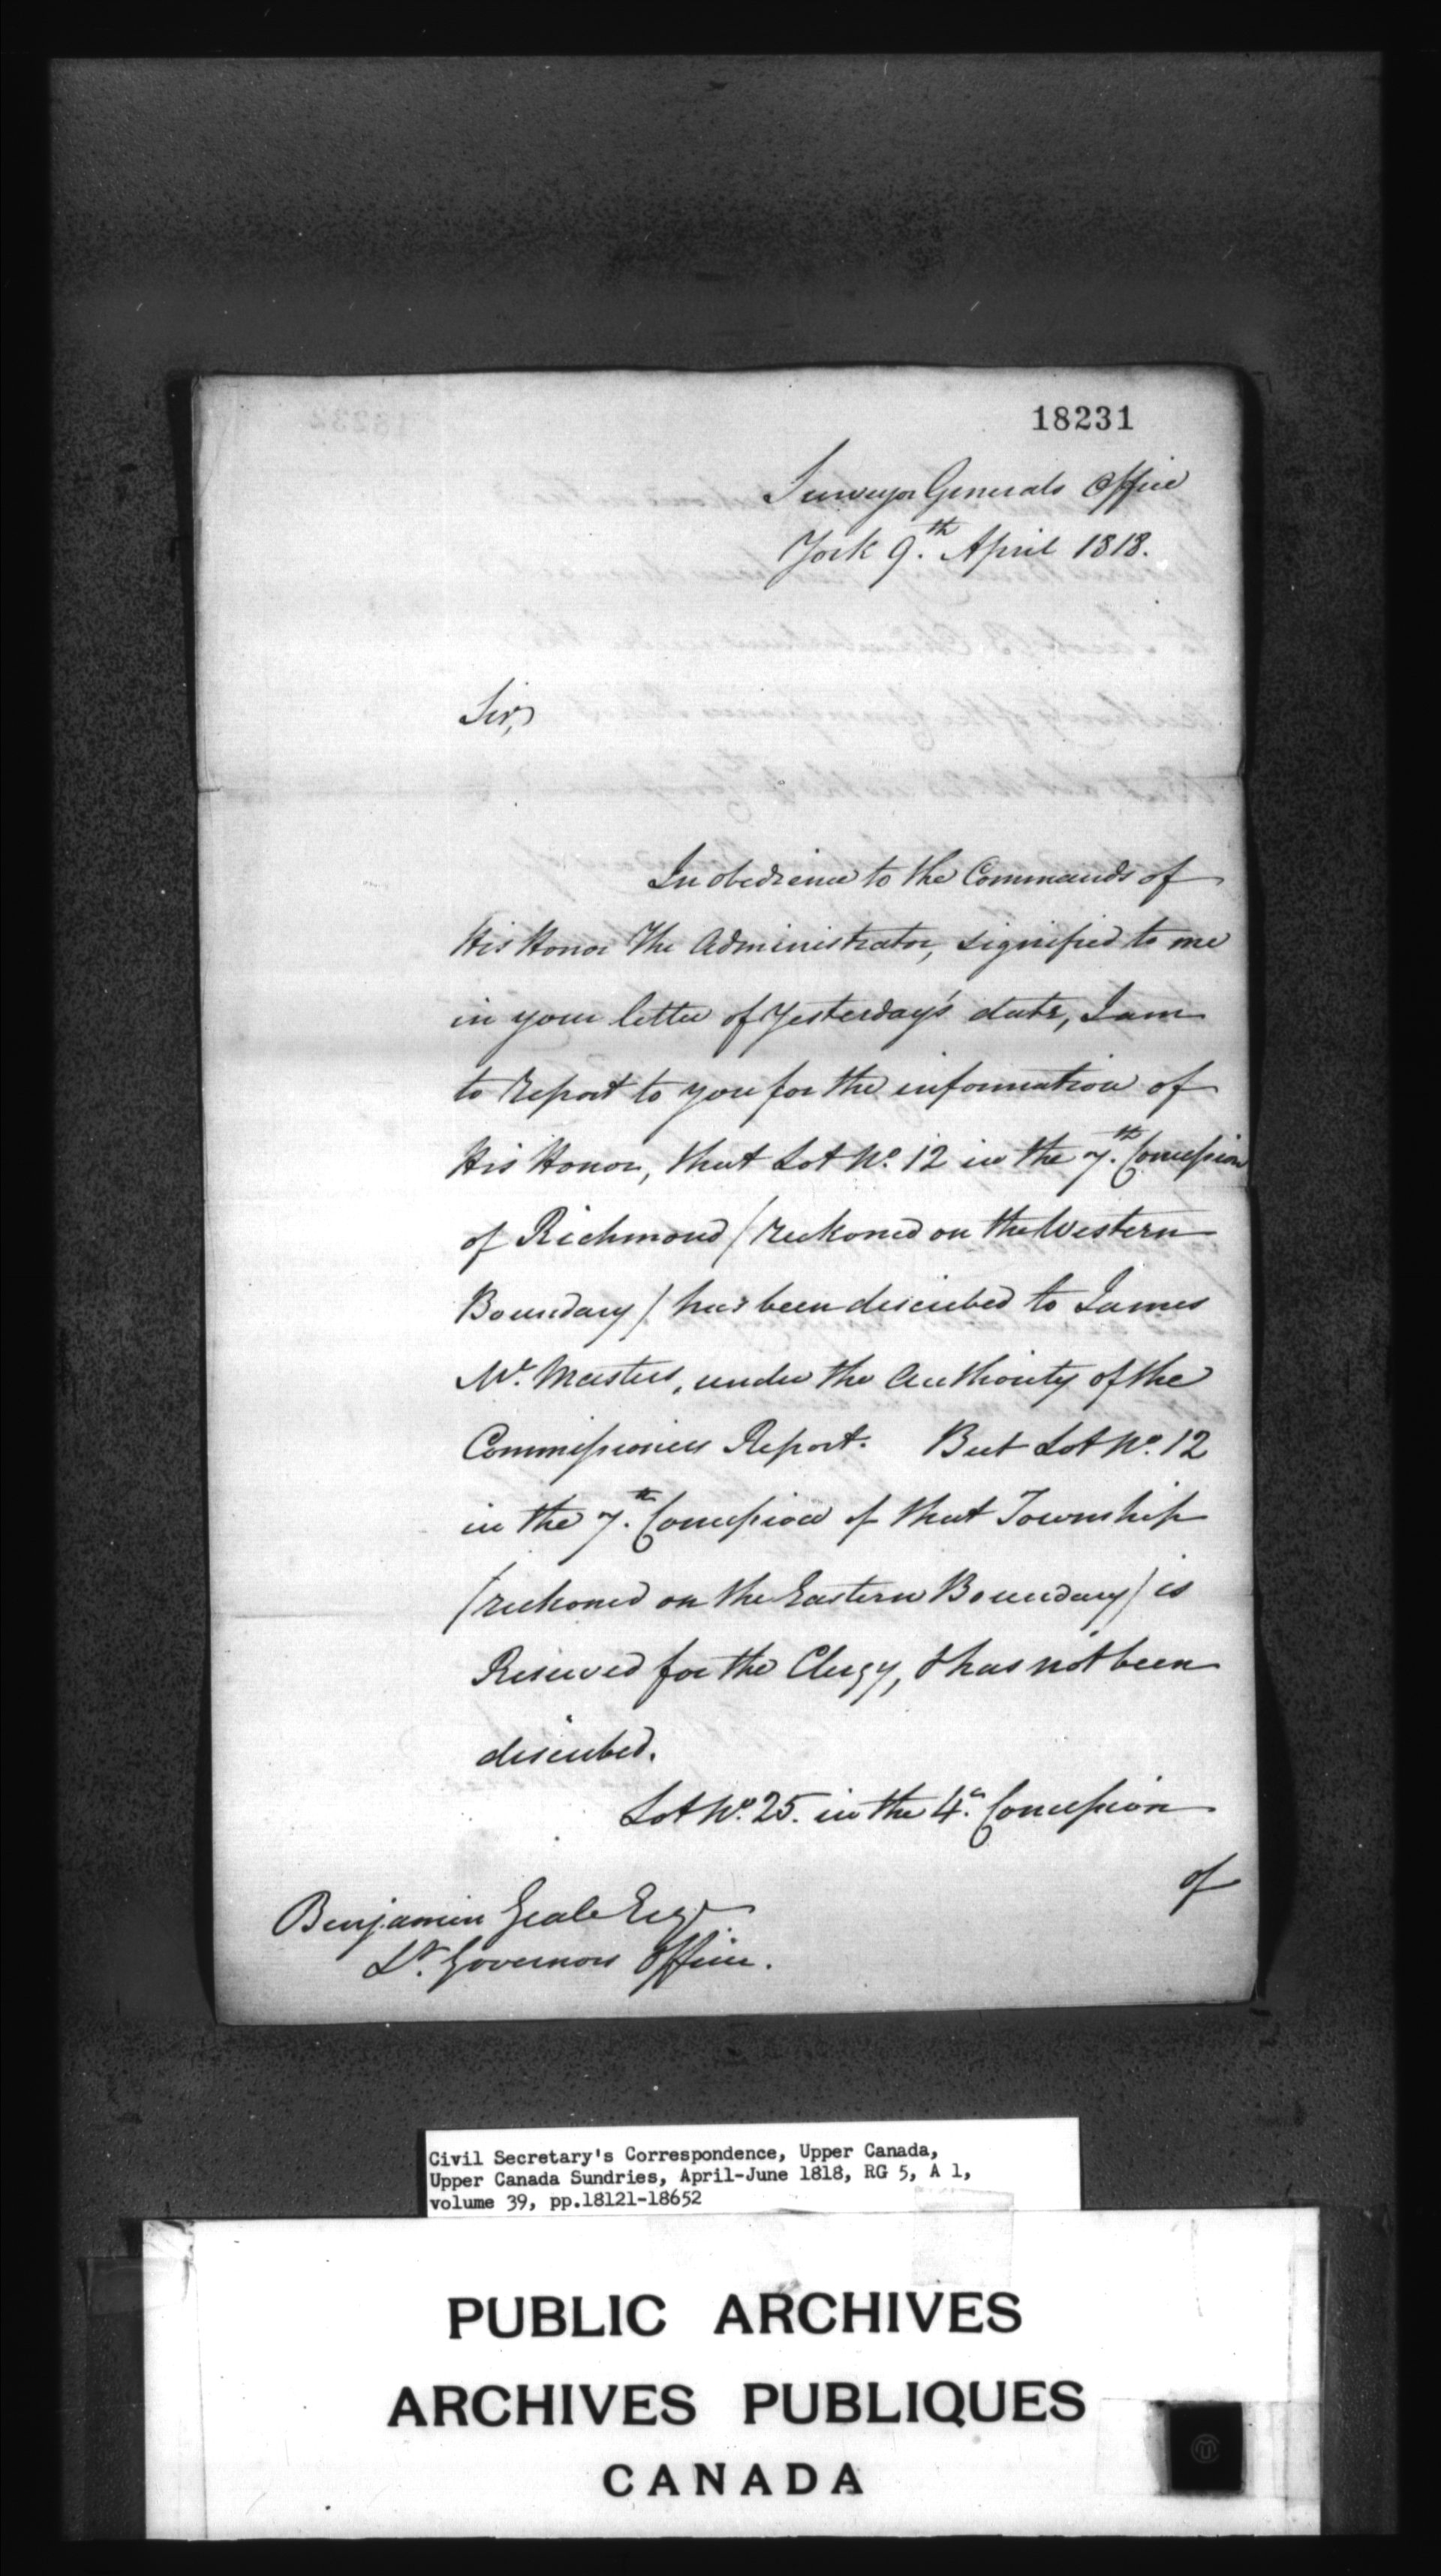 18231
Surveyor Generals Office
York 9.th April 1818.
Sir,
In obedience to the Commands of
His Honor The Administrator, signified to me
in your letter of Yesterday's date, I am
to Report to you for the information of
His Honor, that Lot No. 12 in the 7.th Concession
of Richmond (reckoned on the Western
Boundary) has been described to James
Mc. Masters, under the Authority of the
Commissioners Report. But Lot No. 12
in the 7.th Concession of that Township
(reckoned on the Eastern Boundary) is
Reserved for the Clergy, & has not been
described.
Lot No. 25. in the 4.th Concession
of
Benjamin Geale Esqr.
Lt. Governors Office.
Civil Secretary's Correspondence, Upper Canada,
Upper Canada Sundries, April-June 1818, RG 5, A 1,
volume 39, pp.18121-18652
PUBLIC ARCHIVES
ARCHIVES PUBLIQUES
CANADA